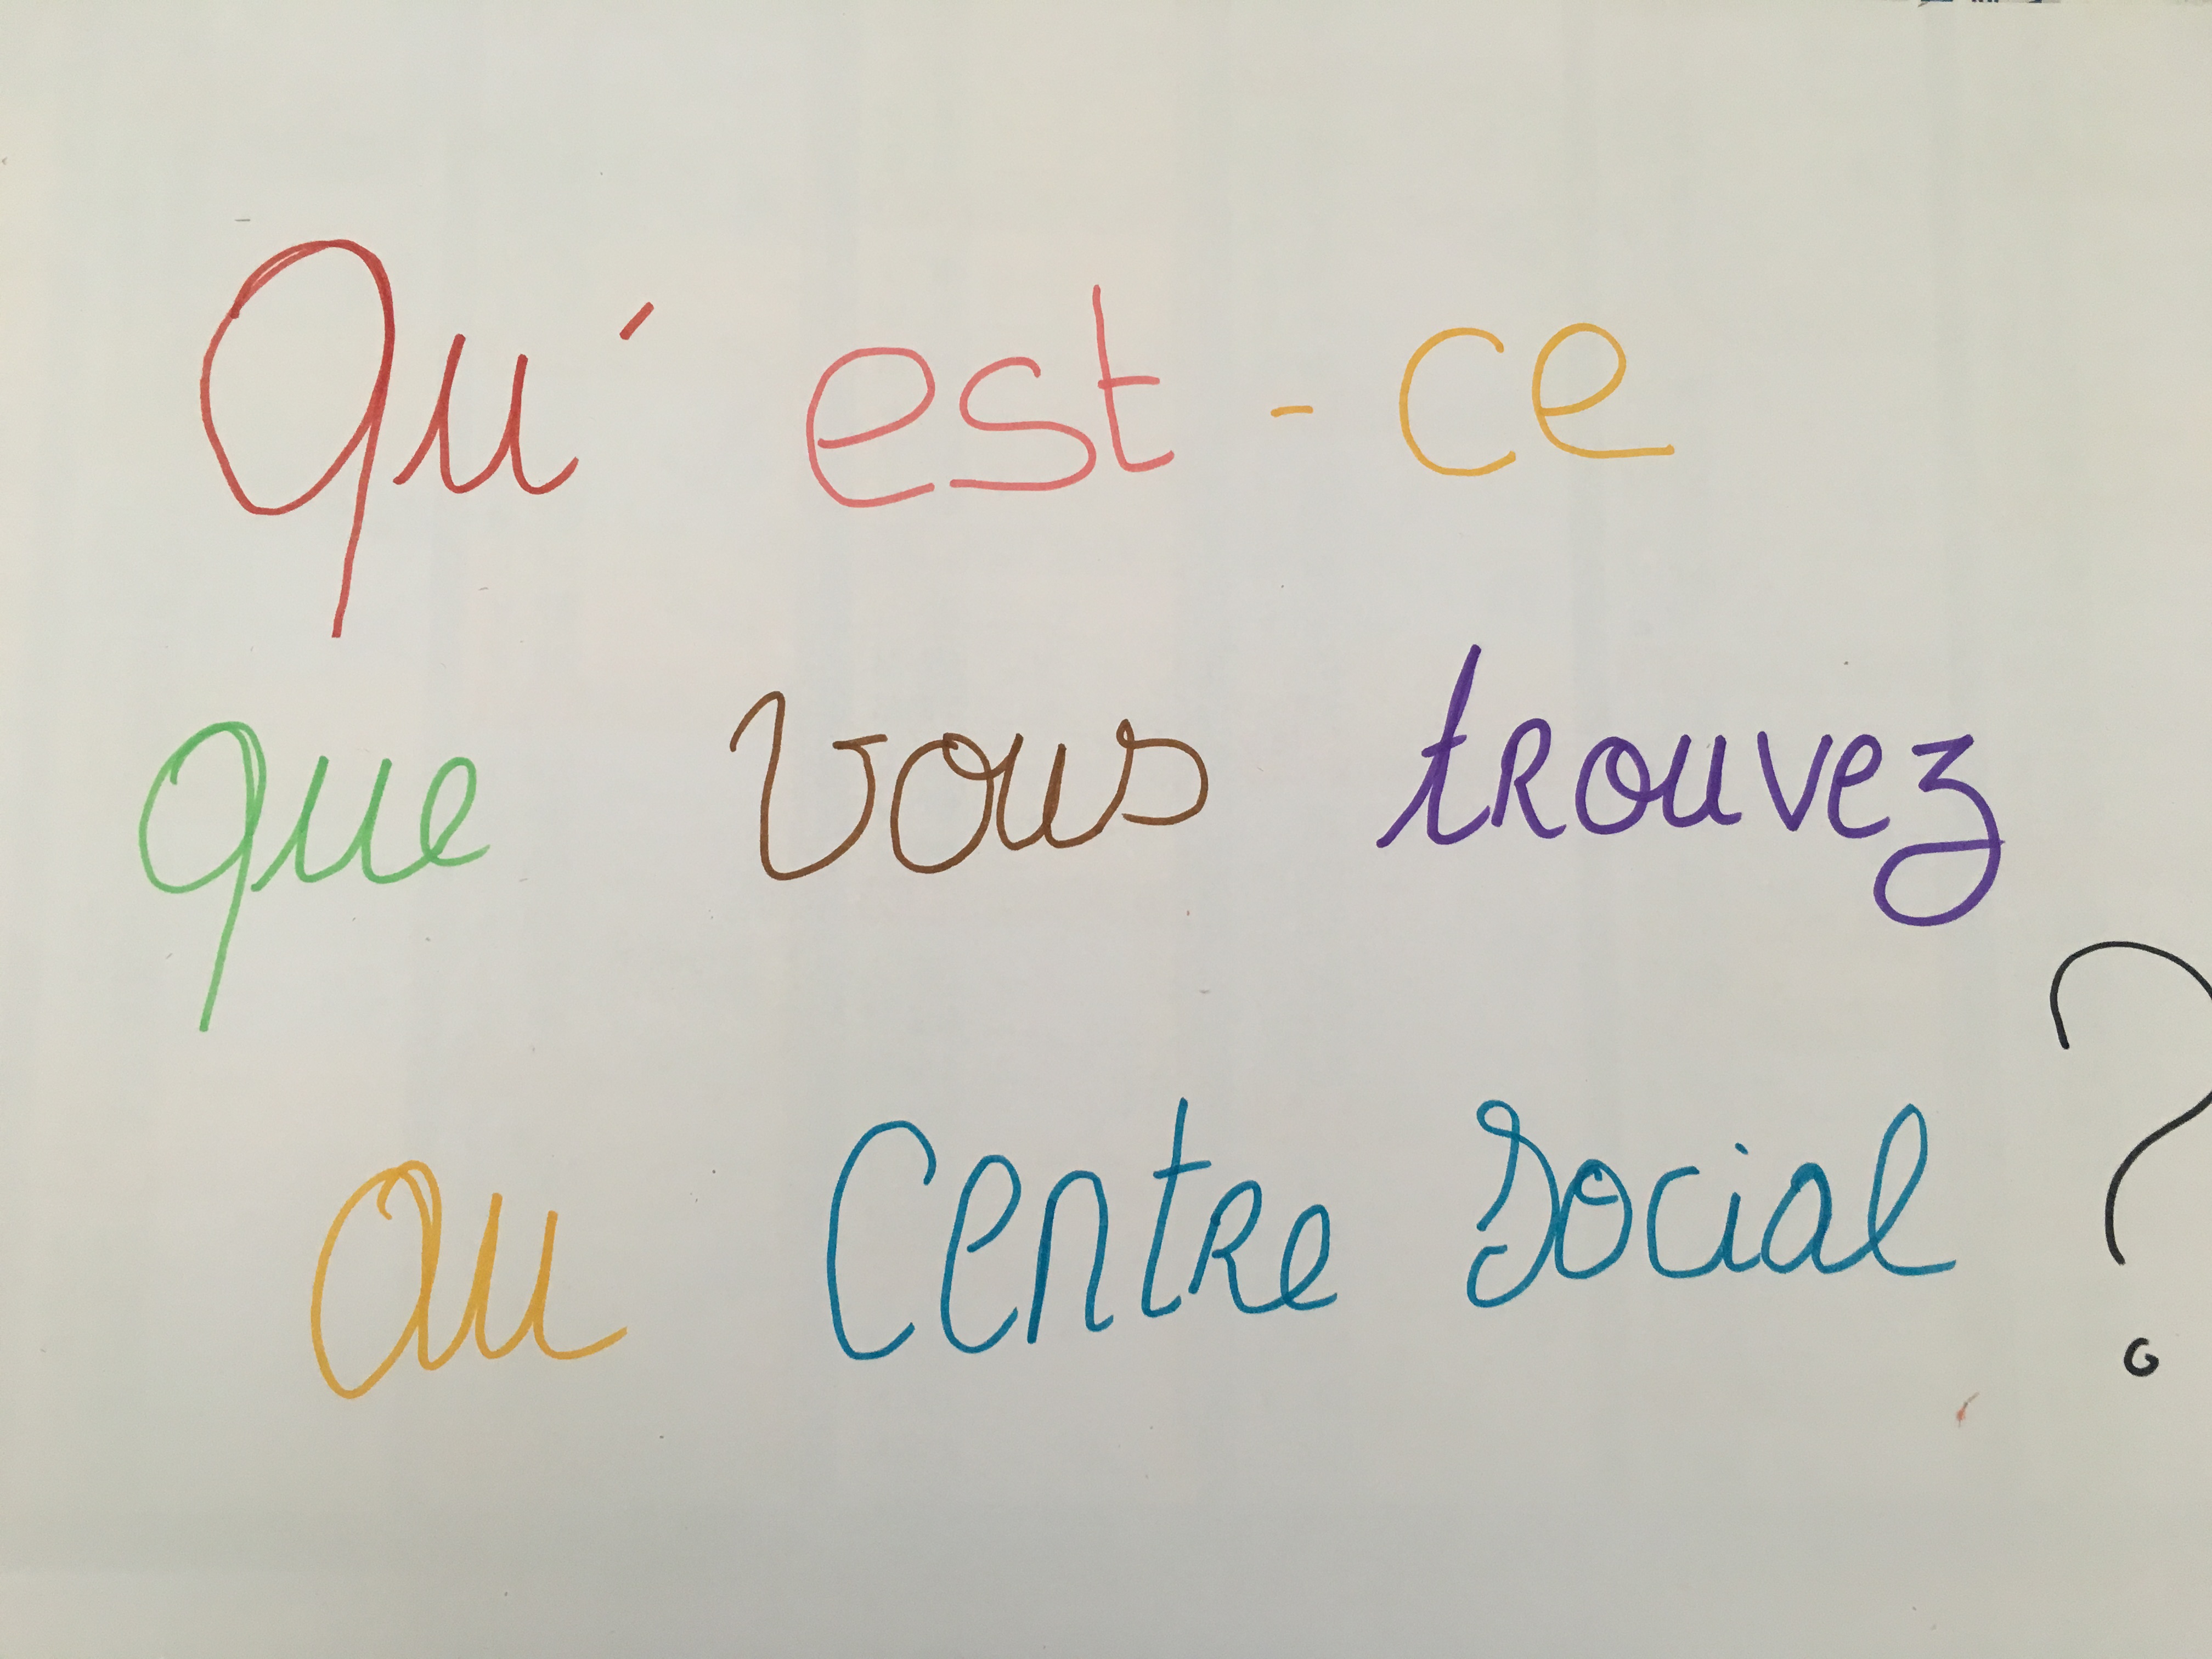 Qu'est-ce
que vous trouvez
au Centre Social ?